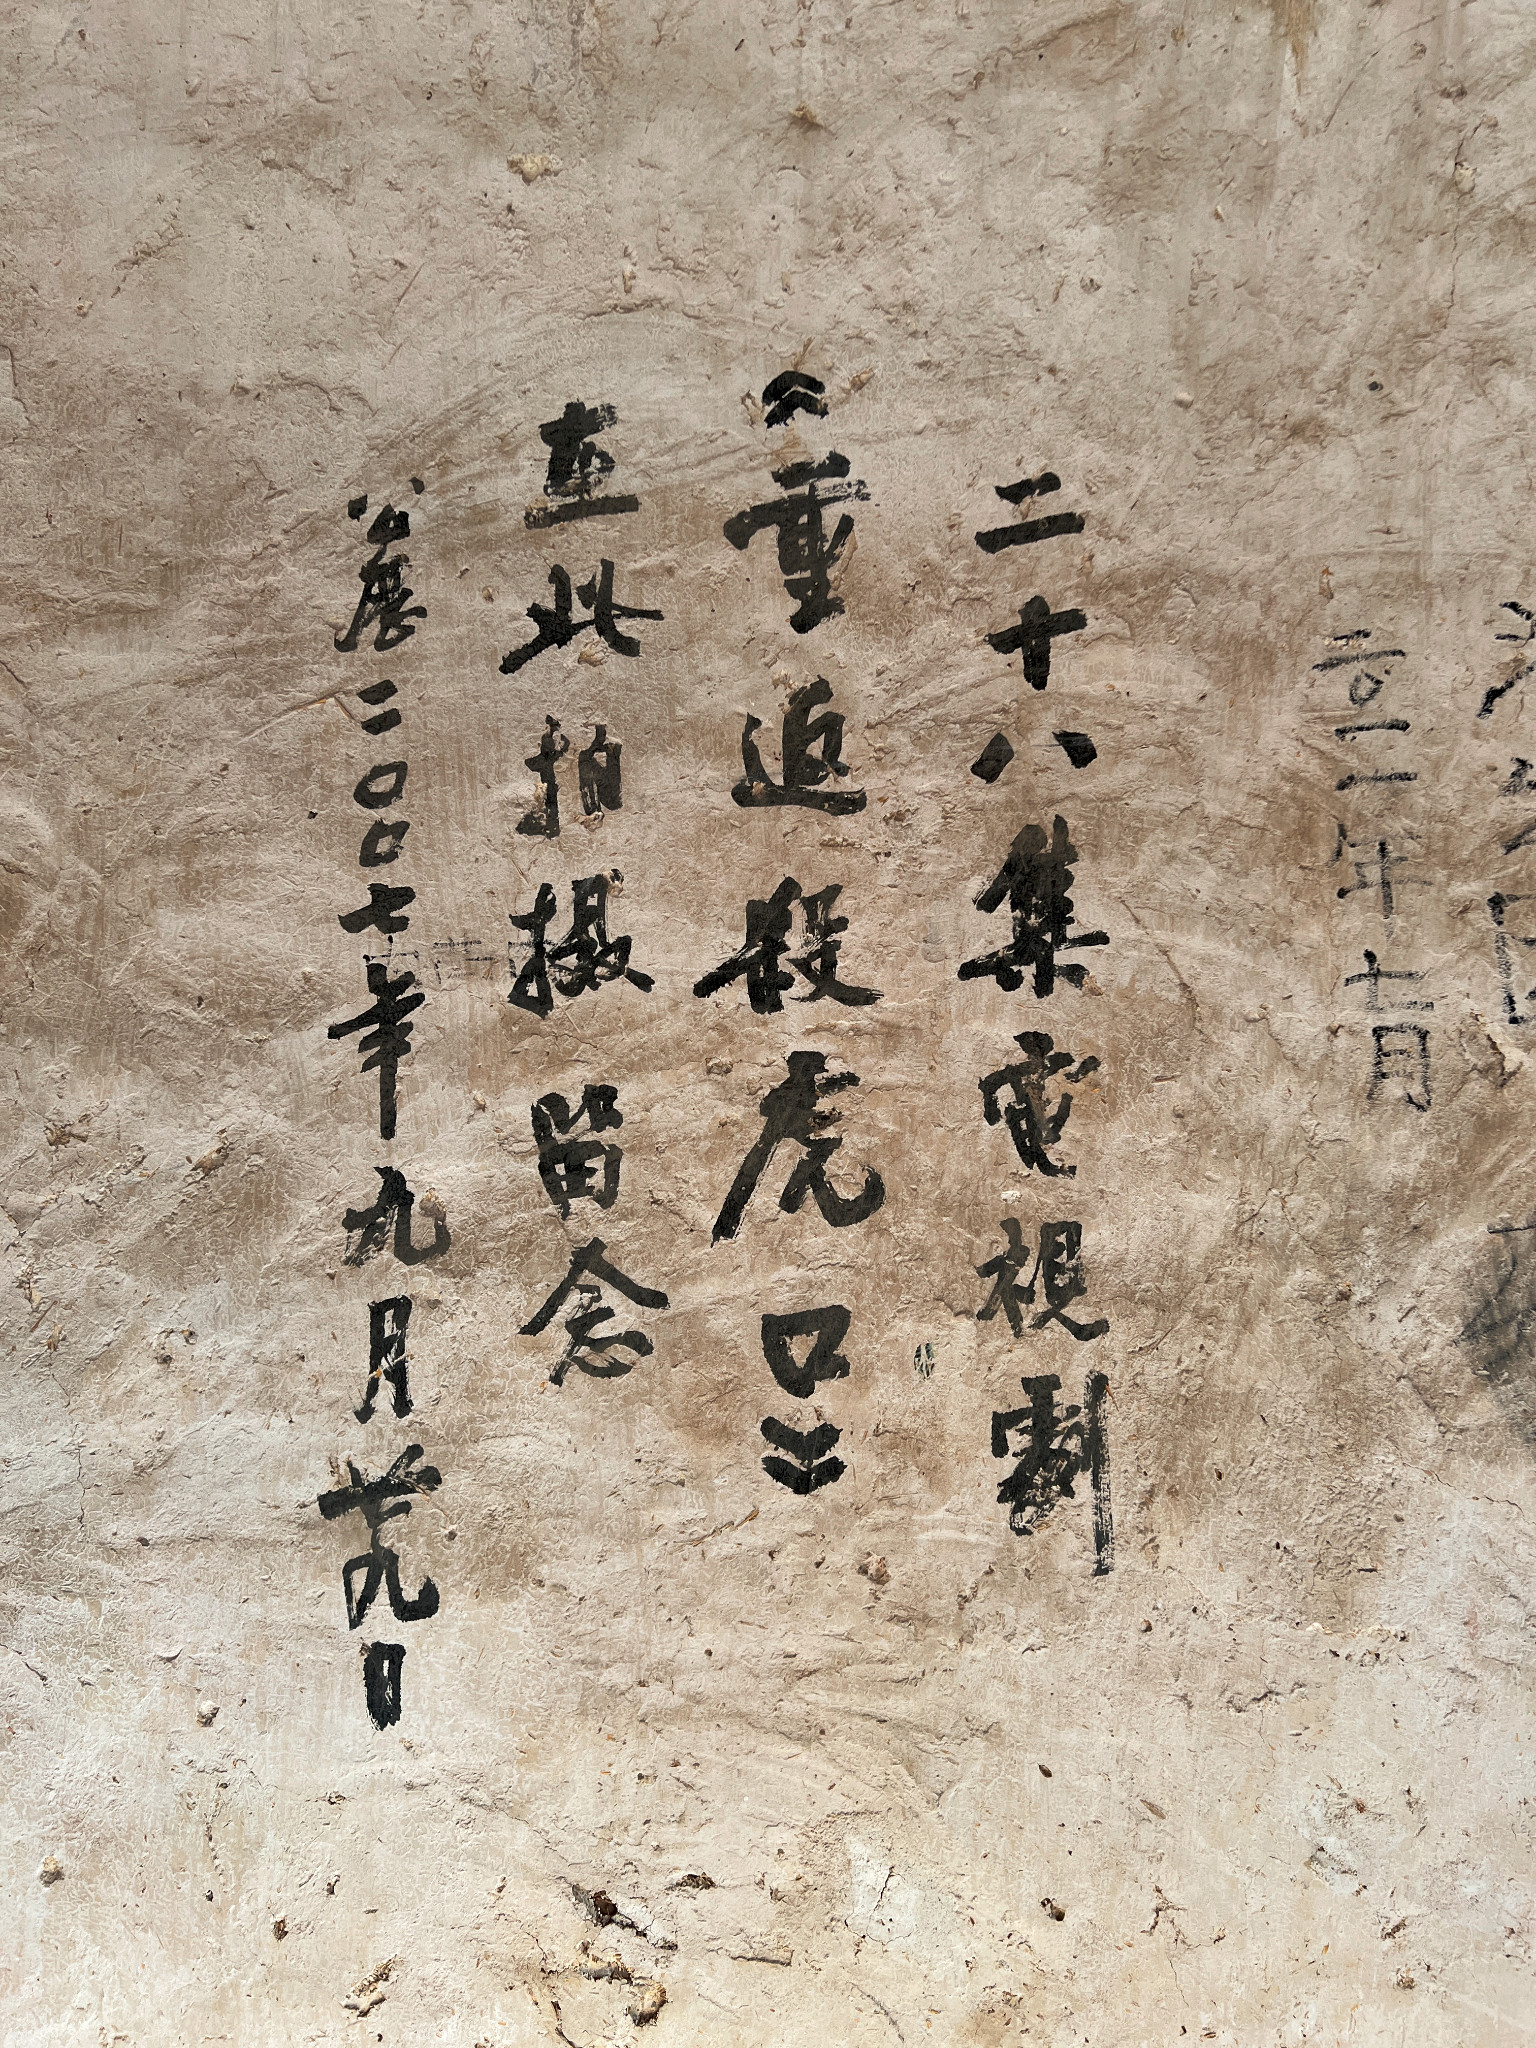 二〇一一年七月
二十八集電視劇
《重返殺虎口》
在此拍摄留念
公曆二〇〇七年九月廿九日